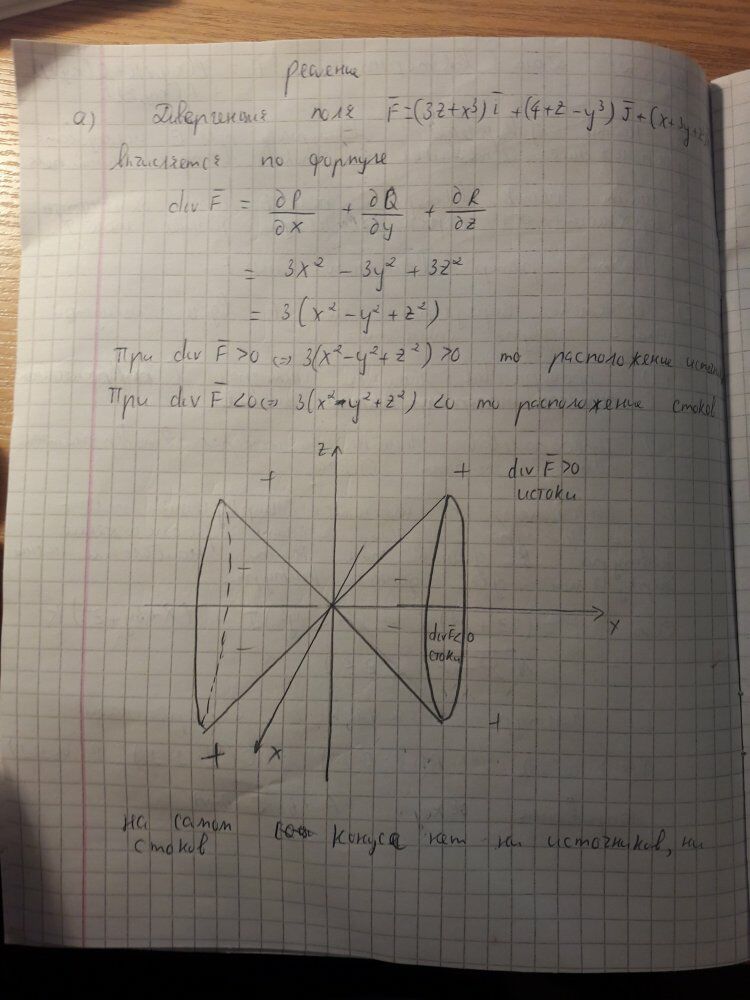 решение
а) Дивергенция поля F̅=(3z+x³) i̅ +(4+z-y³) J̅+(x+3y+z³)
вычисляется по формуле
div F̅ = ∂P/∂x + ∂Q/∂y + ∂R/∂z
= 3x² - 3y² + 3z²
= 3(x² - y² + z²)
При div F̅>0 ⇔ 3(x²-y²+z²)>0 то расположение
При div F̅<0 ⇔ 3(x²-y²+z²)<0 то расположение стоков
z
+ + div F̅>0
истоки
- -
y
- div F̅<0
- стоки
+ x +
на самом конуса нет ни источников, ни
стоков